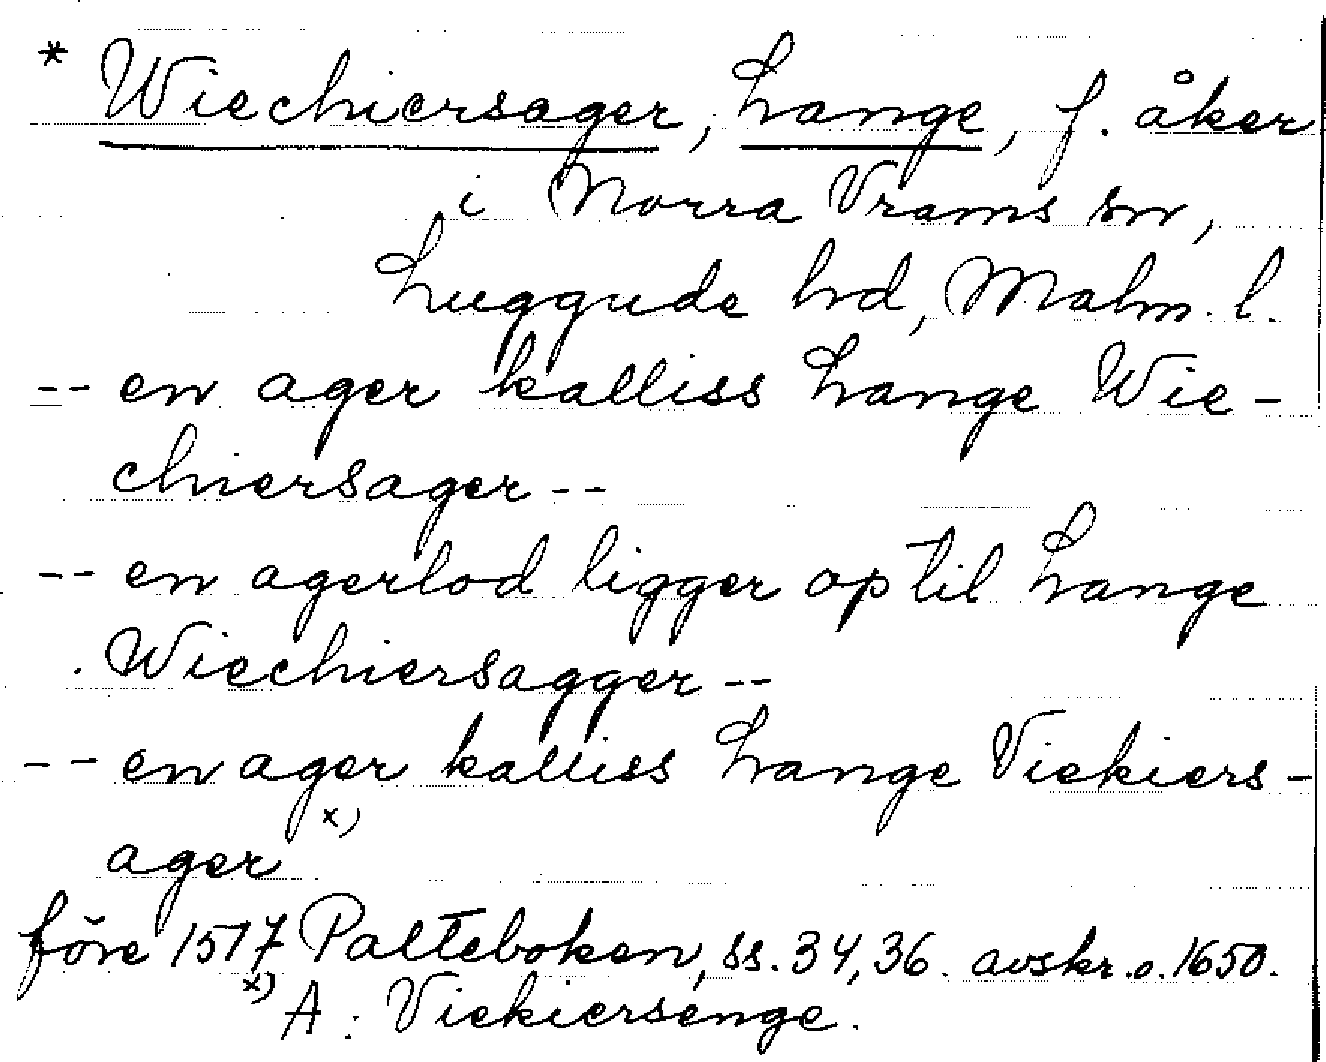 * Wiechiersager, Lange, f. åker
i Norra Vrams sn,
Luggude hd, Malm. l.
-- en ager kalliss Lange Wie-
chiersager --
-- en agerlod ligger op til Lange
Wiechiersagger --
-- en ager kalliss Lange Viekiers-
ager x)
före 1517 Palteboken, ss. 34, 36. avskr. o. 1650.
x) A: Viekiersenge.